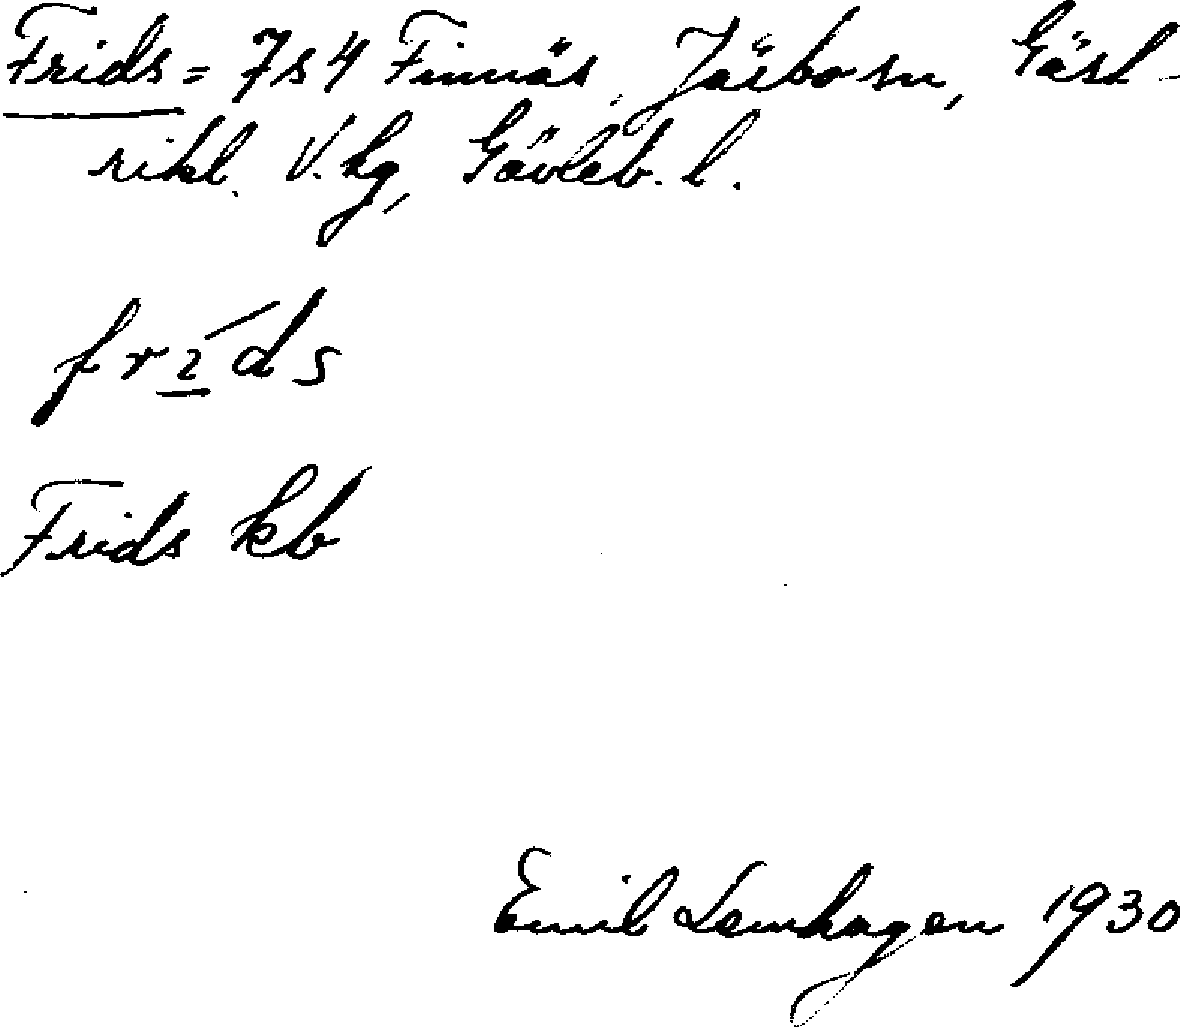 Frids = 7s4 Finnäs, Järbo sn, Gäst-
rikl. V. hg, Gävleb. l.
frí̱ds
Frids kb
Emil Lemhagen 1930